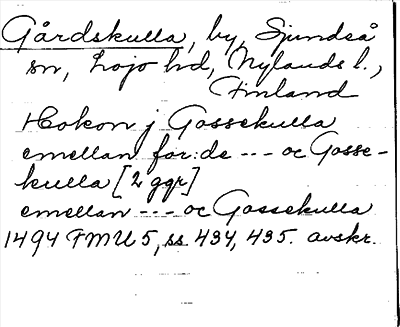 Gårdskulla, by, Sjundså
sn, Lojo hd, Nylands l.,
Finland
Hokon j Gossekulla
emellan for:de --- oc Gosse-
kulla [2 ggr]
emellan --- oc Gossekulla
1494 FMU 5, ss 434, 435. avskr.